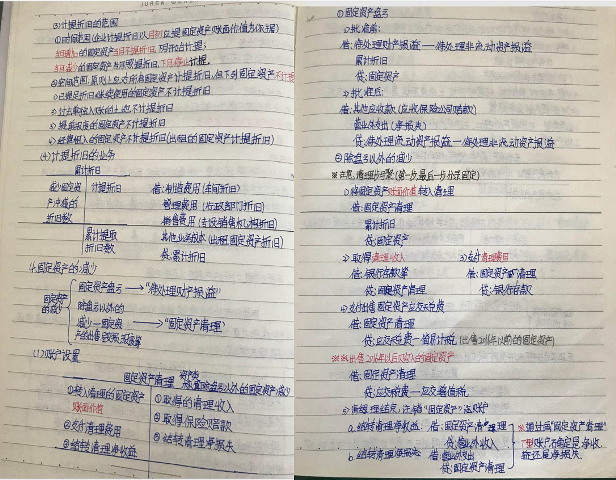 (3)计提折旧的范围
①时间范围(企业计提折旧以月初应提固定资产账面价值为依据)
当月增加的固定资产当月不提折旧,下月计提;
当月减少的固定资产当月照提折旧,下月停止计提。
②空间范围:原则上应对所有固定资产计提折旧,但下列固定资产不计提
1)已提足折旧继续使用的固定资产不计提折旧
2)过去单独入账的土地不计折旧
3)提前报废的固定资产不计提折旧
4)经营租入的固定资产不计提折旧(出租的固定资产计提折旧)
(4)计提折旧的业务
累计折旧
减少固定资产冲销的折旧数
计提折旧
累计提取折旧数
借:制造费用(车间折旧)
管理费用(行政部门折旧)
销售费用(专设销售机构折旧)
其他业务成本(出租固定资产折旧)
贷:累计折旧
4.固定资产的减少
固定资产的减少
固定资产盘亏→“待处理财产损溢”
除盘亏以外的减少→“固定资产清理”
(1)账户设置
固定资产清理 核算除盘亏以外的固定资产减少
①转入清理的固定资产账面价值
②支付清理费用
③结转清理净收益
①取得的清理收入
②取得保险赔款
③结转清理净损失
①固定资产盘亏
1)批准前:
借:待处理财产损溢——待处理非流动资产损溢
累计折旧
贷:固定资产
2)批准后:
借:其他应收款(应收保险公司赔款)
营业外支出(净损失)
贷:待处理财产损溢——待处理非流动资产损溢
②除盘亏以外的减少
1)将固定资产账面价值转入清理
借:固定资产清理
累计折旧
贷:固定资产
2)取得清理收入
借:银行存款等
贷:固定资产清理
3)支付清理费用
借:固定资产清理
贷:银行存款
借:固定资产清理
借:固定资产清理
贷:应交税费——应交增值税
5)清理结束,注销“固定资产”该账户
a.结转清理净收益 借:固定资产清理
贷:营业外收入
b.结转清理净损失 借:营业外支出
贷:固定资产清理